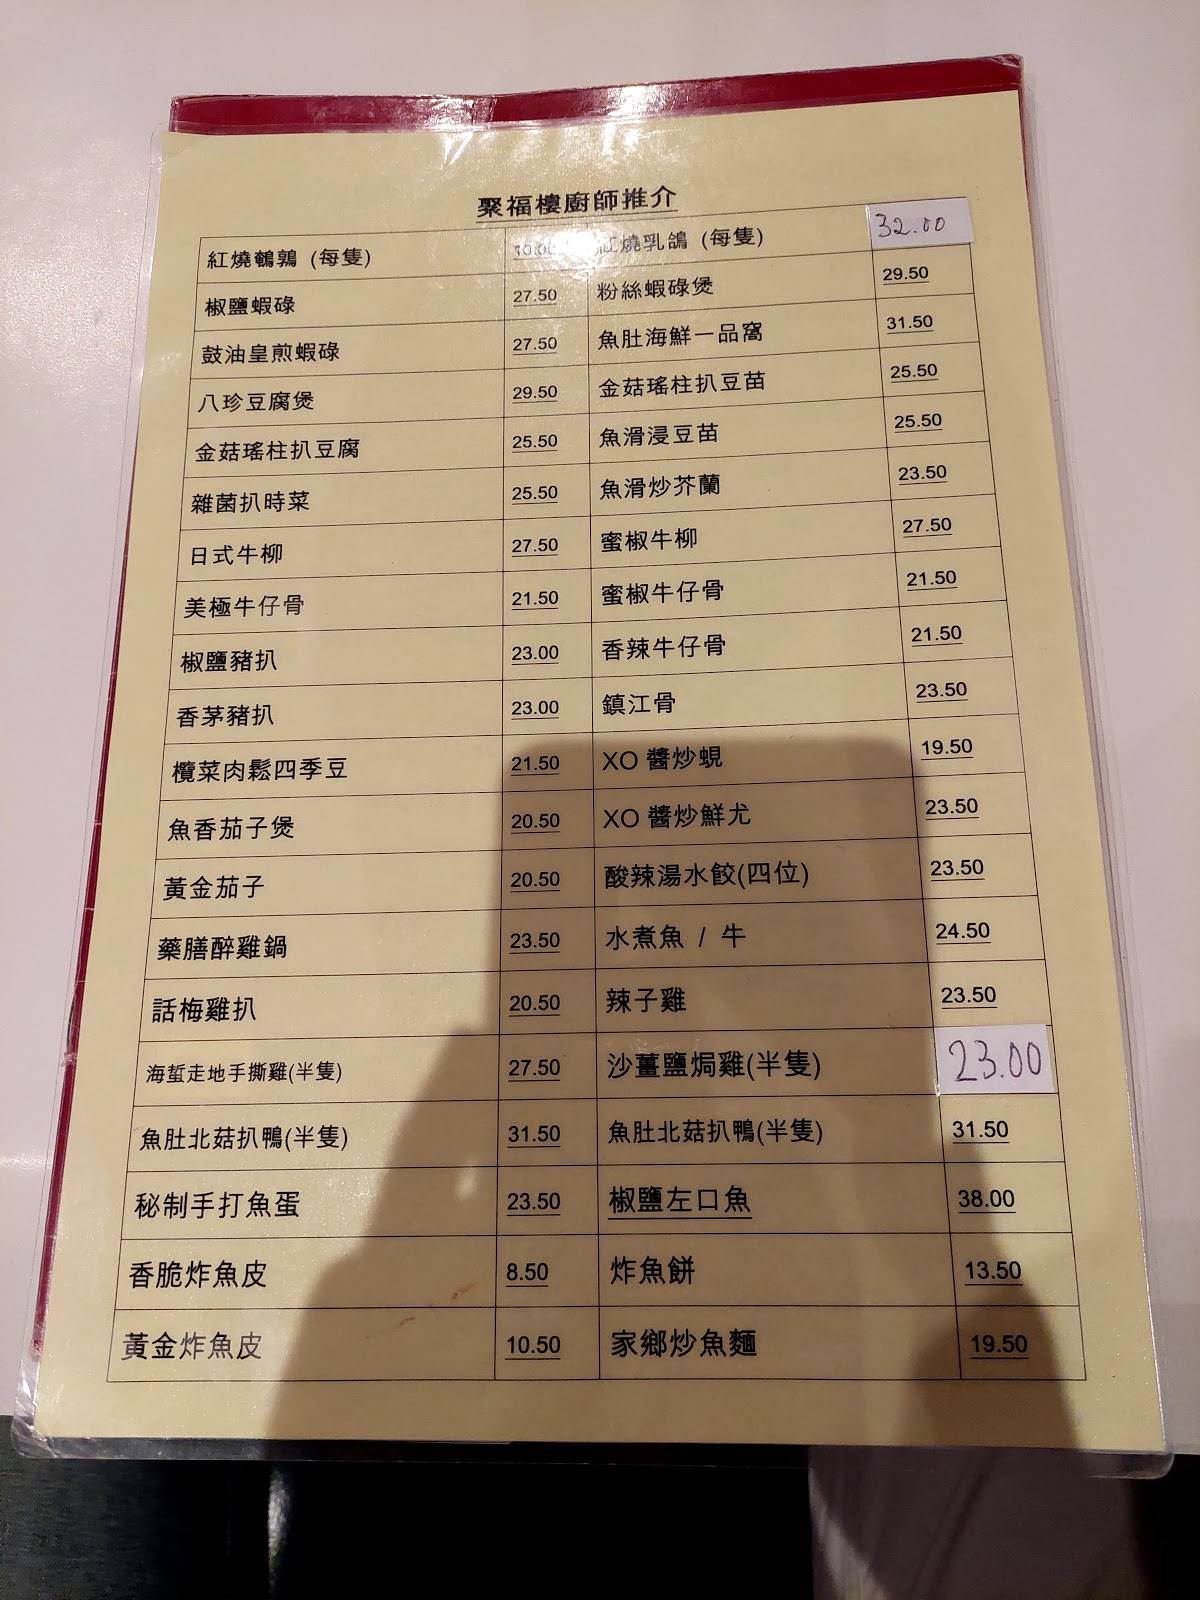 聚福樓廚師推介
紅燒鵪鶉 (每隻) 10.00 紅燒乳鴿 (每隻) 32.00
椒鹽蝦碌 27.50 粉絲蝦碌煲 29.50
鼓油皇煎蝦碌 27.50 魚肚海鮮一品窩 31.50
八珍豆腐煲 29.50 金菇瑤柱扒豆苗 25.50
金菇瑤柱扒豆腐 25.50 魚滑浸豆苗 25.50
雜菌扒時菜 25.50 魚滑炒芥蘭 23.50
日式牛柳 27.50 蜜椒牛柳 27.50
美極牛仔骨 21.50 蜜椒牛仔骨 21.50
椒鹽豬扒 23.00 香辣牛仔骨 21.50
香茅豬扒 23.00 鎮江骨 23.50
欖菜肉鬆四季豆 21.50 XO 醬炒蜆 19.50
魚香茄子煲 20.50 XO 醬炒鮮尤 23.50
黃金茄子 20.50 酸辣湯水餃(四位) 23.50
藥膳醉雞鍋 23.50 水煮魚 / 牛 24.50
話梅雞扒 20.50 辣子雞 23.50
海蜇走地手撕雞(半隻) 27.50 沙薑鹽焗雞(半隻) 23.00
魚肚北菇扒鴨(半隻) 31.50 魚肚北菇扒鴨(半隻) 31.50
秘制手打魚蛋 23.50 椒鹽左口魚 38.00
香脆炸魚皮 8.50 炸魚餅 13.50
黃金炸魚皮 10.50 家鄉炒魚麵 19.50